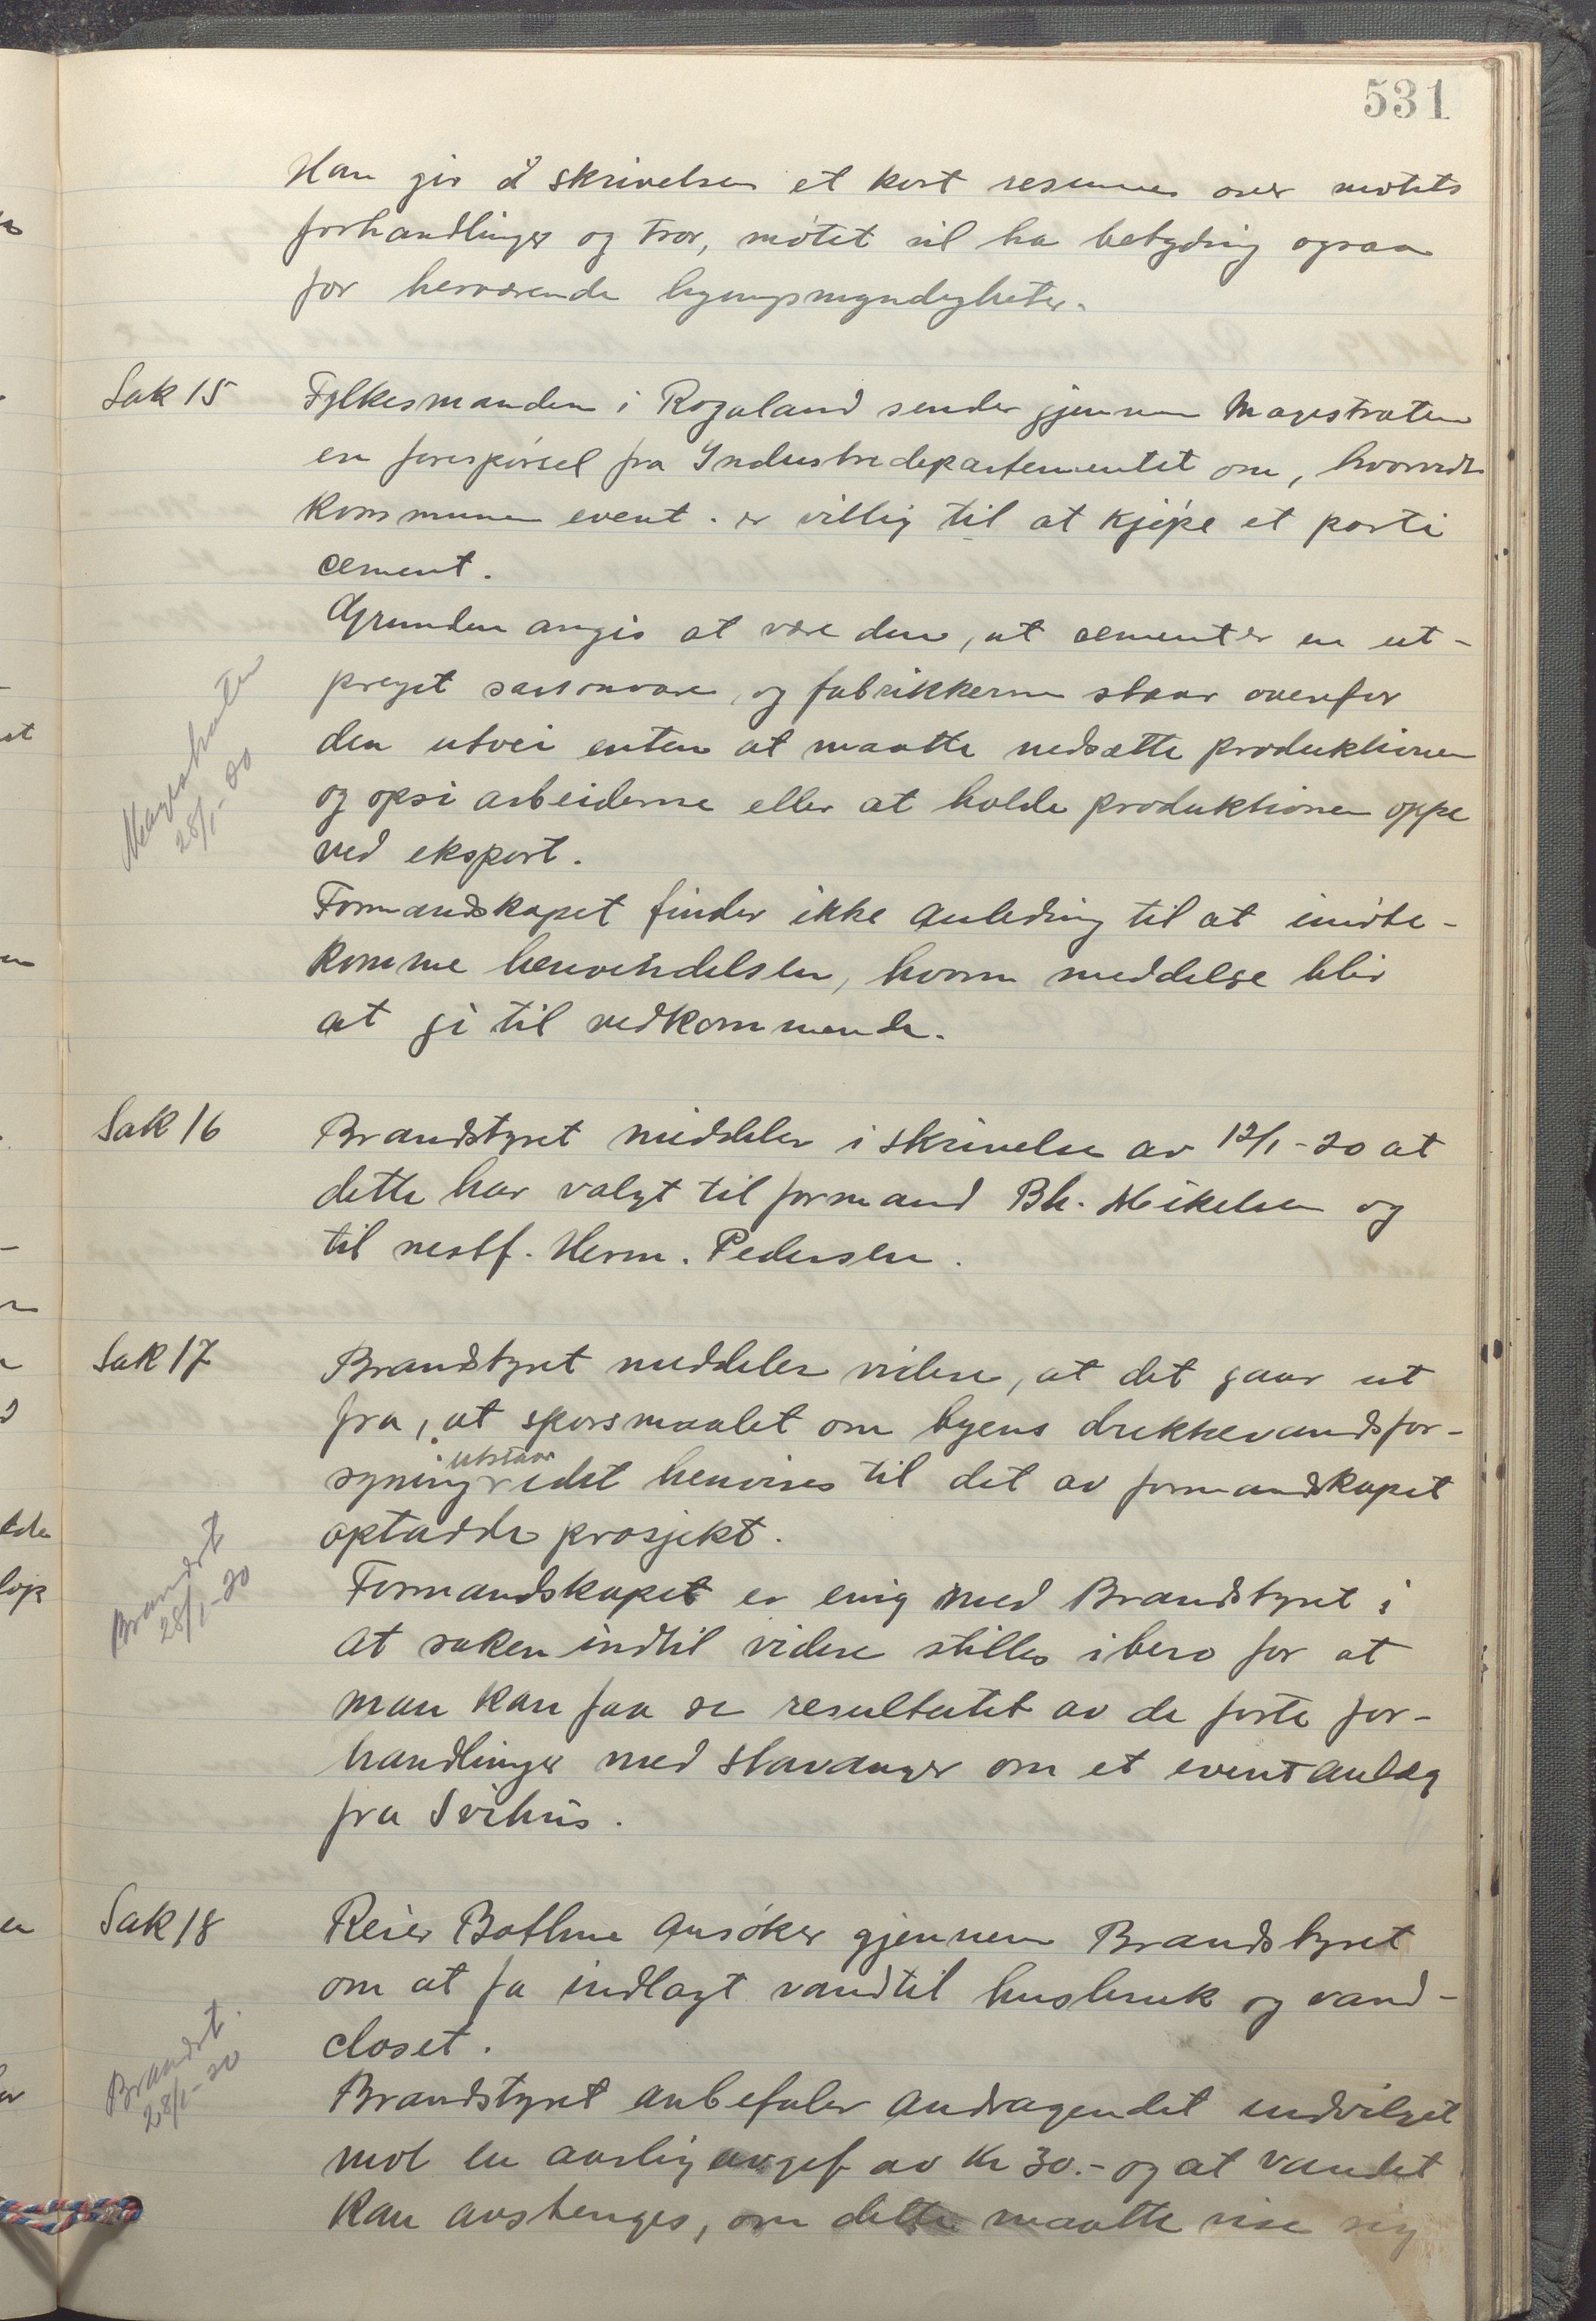 531
Han gir i skrivelsen et kort resumee over møtets
forhandlinger og tror, møtet vil ha betydning ogsaa
for herværende bygningsmyndigheter.
Sak 15
Fylkesmanden i Rogaland sender gjennem Magistraten
en forespørsel fra Industridepartementet om, hvorvidt
kommunen event. er villig til at kjøpe et parti
cement.
Grunden angis at være den, at cement er en ut-
preget sæsonvare og fabrikkerne staar ovenfor
den utvei enten at maatte nedsætte produktionen
og opsi arbeiderne eller at holde produktionen oppe
ved eksport.
Magistraten
28/1-20
Formandskapet finder ikke anledning til at imøte-
komme henvendelsen, hvorom meddelse blir
at gi til vedkommende.
Sak 16
Brandstyret meddeler i skrivelse av 12/1-20 at
dette har valgt til formand Bh. Mikelsen og
til nestf. Herm. Pedersen.
Sak 17
Brandstyret meddeler videre, at det gaar ut
fra, at spørsmaalet om byens drikkevandsfor-
utstaar
syning idet henvises til det av formandskapet
optadde prosjekt.
Brandst
28/1-20
Formandskapet er enig med Brandstyret i
at saken indtil videre stilles i bero for at
man kan faa se resultatet av de førte for-
handlinger med Stavanger om et event anlæg
fra Svihus.
Sak 18
Reier Bothne ansøker gjennem Brandstyret
om at fa indlagt vand til husbruk og vand-
closet.
Brandst.
28/1-20
Brandstyret anbefaler andragendet indvilget
mot en aarlig avgif av Kr 30.- og at vandet
kan avstenges, om dette maatte vise sig